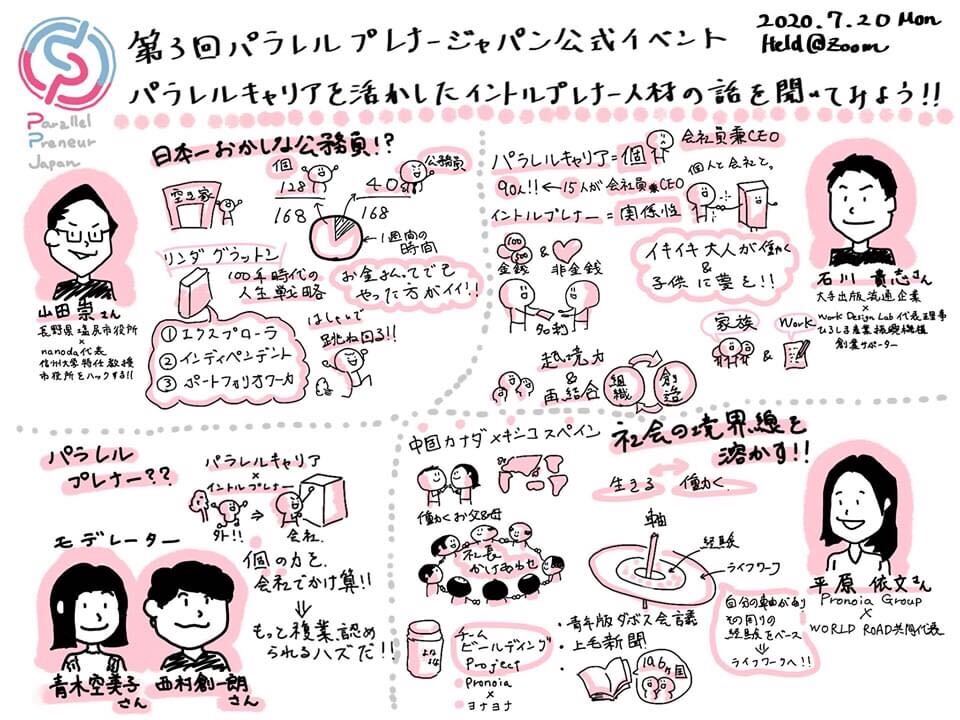 第3回パラレルプレナージャパン公式イベント
2020.7.20 Mon
Held@Zoom
パラレルキャリアを活かしたイントルプレナー人材の話を聞いてみよう!!
Parallel
Preneur
Japan
日本一おかしな公務員!?
空き家
個
128
168
公務員
40
168
1週間の
時間
リンダグラットン
100年時代の
人生戦略
①エクスプローラ
②インディペンデント
③ポートフォリオワーカ
お金もらってでも
やった方がイイ!!
はしゃいで
跳ね回る!!
山田崇さん
長野県塩尻市役所
×
nanoda代表
信州大学特任教授
市役所をハックする!!
パラレルキャリア=個
会社員兼CEO
90人!!←15人が会社員兼CEO
イントルプレナー=関係性
個人と会社と。
100
500
金銭
&
非金銭
イキイキ大人が働く
&
子供に夢を!!
家族
&
Work
越境力
&
再結合
組織
創造
石川貴志さん
大手出版流通企業
×
Work Design Lab代表理事
ひろしま産業振興機構
創業サポーター
パラレル
プレナー??
パラレルキャリア
×
イントルプレナー
外!!
⇒
会社.
モデレーター
個の力を、
会社でかけ算!!
もっと複業認め
られるハズだ!!
青木空美子
さん
西村創一朗
さん
中国カナダメキシコスペイン
社会の境界線を
溶かす!!
生きる
働く
働くお父&母
社長
かけあわせ
軸
経験
ライフワーク
自分の軸があり
その周りの
経験をベース
ライフワークへ!!
チーム
ビールディング
Project
Pronoia
×
ヨナヨナ
・青年版ダボス会議
・上毛新聞
106ヶ国
平原依文さん
Pronoia Group
×
WORLD ROAD共同代表